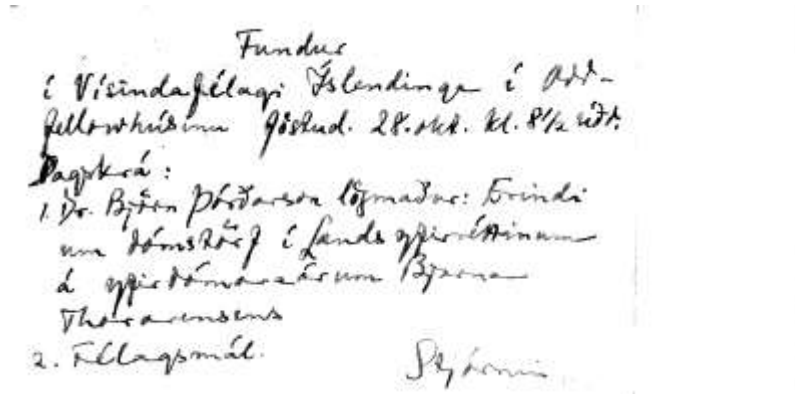 Fundur
í Vísindafélagi Íslendinga í Odd-
fellowhúsinu föstud. 28. okt. kl. 8 1/2 síðd.
Dagskrá:
1. Dr. Björn Þórðarson lögmaður: Erindi
um dómstörf í Landsyfirréttinum
á yfirdómaraárum Bjarna
Thorarensens
2. Félagsmál.
Stjórnin